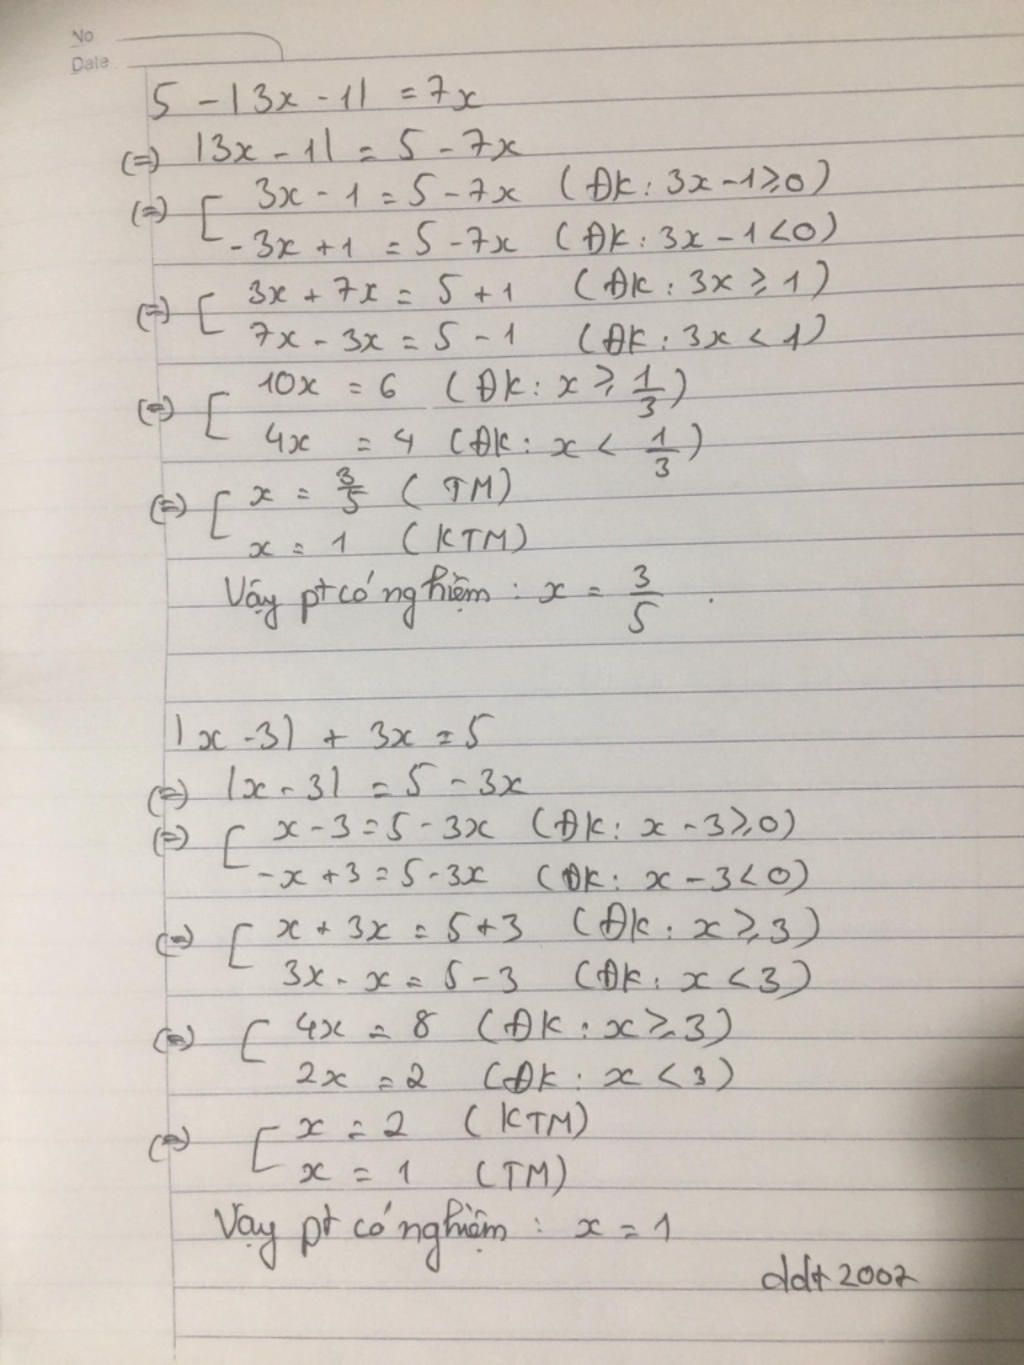 No
Date
5 - |3x - 1| = 7x
(=) |3x - 1| = 5 - 7x
(=) [ 3x - 1 = 5 - 7x (ĐK: 3x - 1 ≥ 0)
-3x + 1 = 5 - 7x (ĐK: 3x - 1 < 0)
(=) [ 3x + 7x = 5 + 1 (ĐK: 3x ≥ 1)
7x - 3x = 5 - 1 (ĐK: 3x < 1)
(=) [ 10x = 6 (ĐK: x ≥ 1/3)
4x = 4 (ĐK: x < 1/3)
(=) [ x = 3/5 (TM)
x = 1 (KTM)
Vậy pt có nghiệm : x = 3/5 .
|x - 3| + 3x = 5
(=) |x - 3| = 5 - 3x
(=) [ x - 3 = 5 - 3x (ĐK: x - 3 ≥ 0)
-x + 3 = 5 - 3x (ĐK: x - 3 < 0)
(=) [ x + 3x = 5 + 3 (ĐK: x ≥ 3)
3x - x = 5 - 3 (ĐK: x < 3)
(=) [ 4x = 8 (ĐK: x ≥ 3)
2x = 2 (ĐK: x < 3)
(=) [ x = 2 (KTM)
x = 1 (TM)
Vậy pt có nghiệm : x = 1
ddt 2007